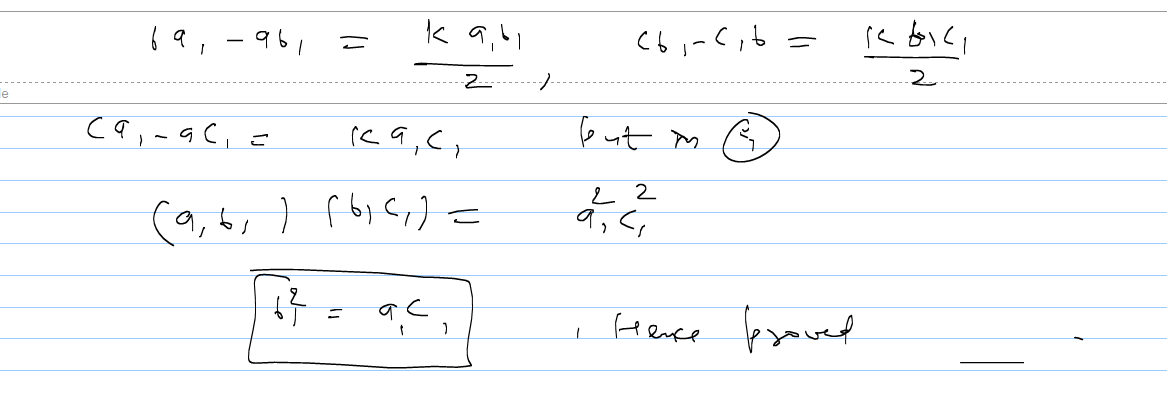 ba₁ - ab₁ = k a₁b₁ / 2 , cb₁ - c₁b = k b₁c₁ / 2
e
ca₁ - ac₁ = k a₁c₁ put in
(a₁b₁) (b₁c₁) = a₁² c₁²
b₁² = a₁c₁ , Hence proved